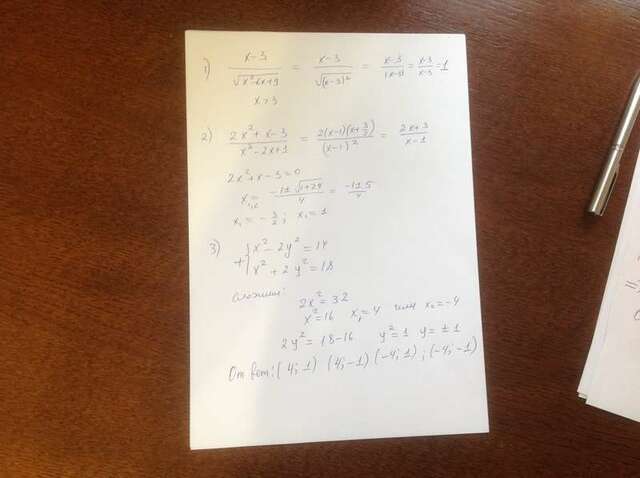 1) (x-3)/√(x²-6x+9) = (x-3)/√((x-3)²) = (x-3)/|x-3| = (x-3)/(x-3) = 1
x>3
2) (2x²+x-3)/(x²-2x+1) = (2(x-1)(x+3/2))/(x-1)² = (2x+3)/(x-1)
2x²+x-3=0
x₁,₂ = (-1±√(1+24))/4 = (-1±5)/4
x₁ = -3/2; x₂ = 1
3) + { x² - 2y² = 14
x² + 2y² = 18
сложим:
2x² = 32
x² = 16 x₁ = 4 или x₂ = -4
2y² = 18-16 y² = 1 y = ±1
Ответ: (4; 1) (4; -1) (-4; 1); (-4; -1)